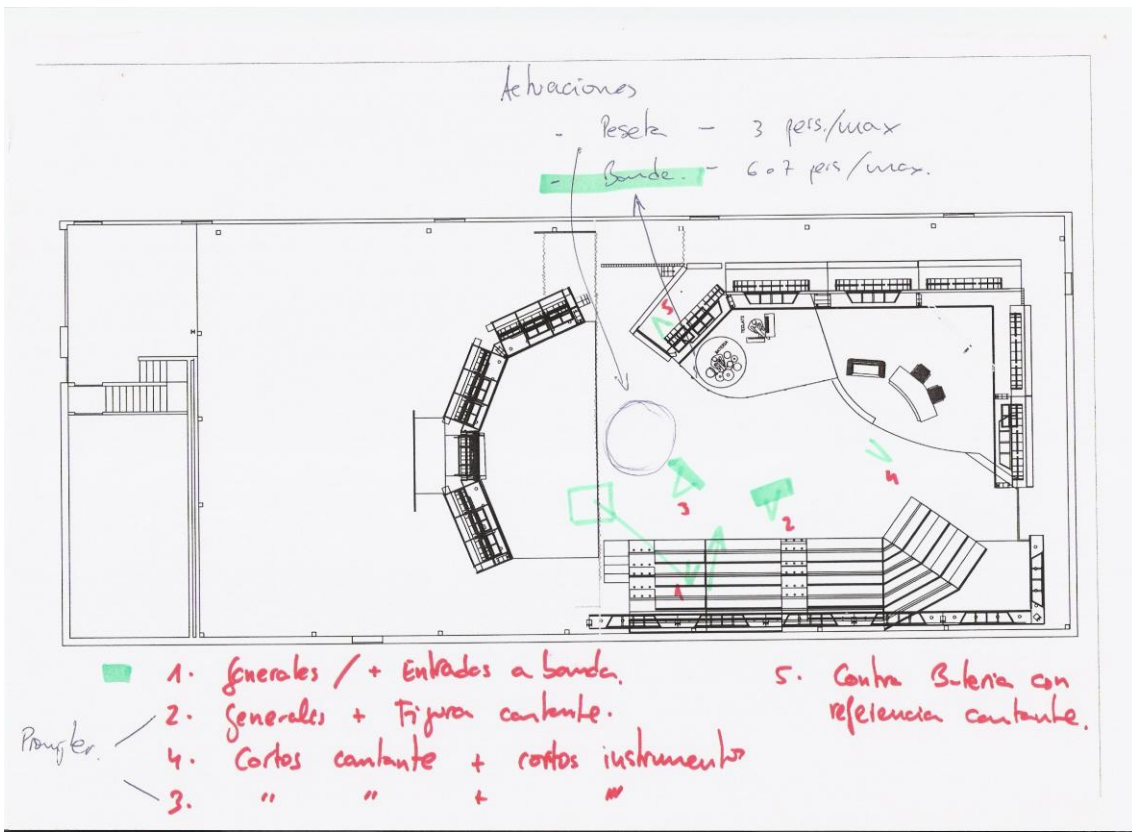 Actuaciones
- Peseta - 3 pers./max
- Banda. - 6 o 7 pers/max.
5
TECLATS
BATERIA
4
3
2
1
1. generales / + Entradas a banda.
2. generales + Figura cantante.
Prompter.
4. Cortos cantante + cortos instrumentos
3. " " + "
5. Contra Bateria con
referencia cantante.